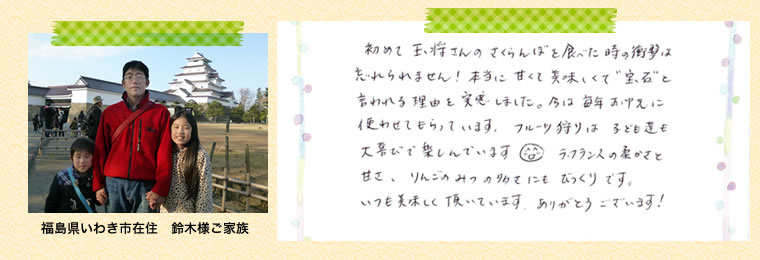 福島県いわき市在住　鈴木様ご家族
初めて王将さんのさくらんぼを食べた時の衝撃は
忘れられません！本当に甘くて美味しくて"宝石"と
言われる理由を実感しました。今は毎年お中元に
使わせてもらっています。フルーツ狩りは子ども達も
大喜びで楽しんでいます ラ・フランスの柔かさと
甘さ、りんごのみつの多さにもびっくりです。
いつも美味しく頂いています。ありがとうございます！